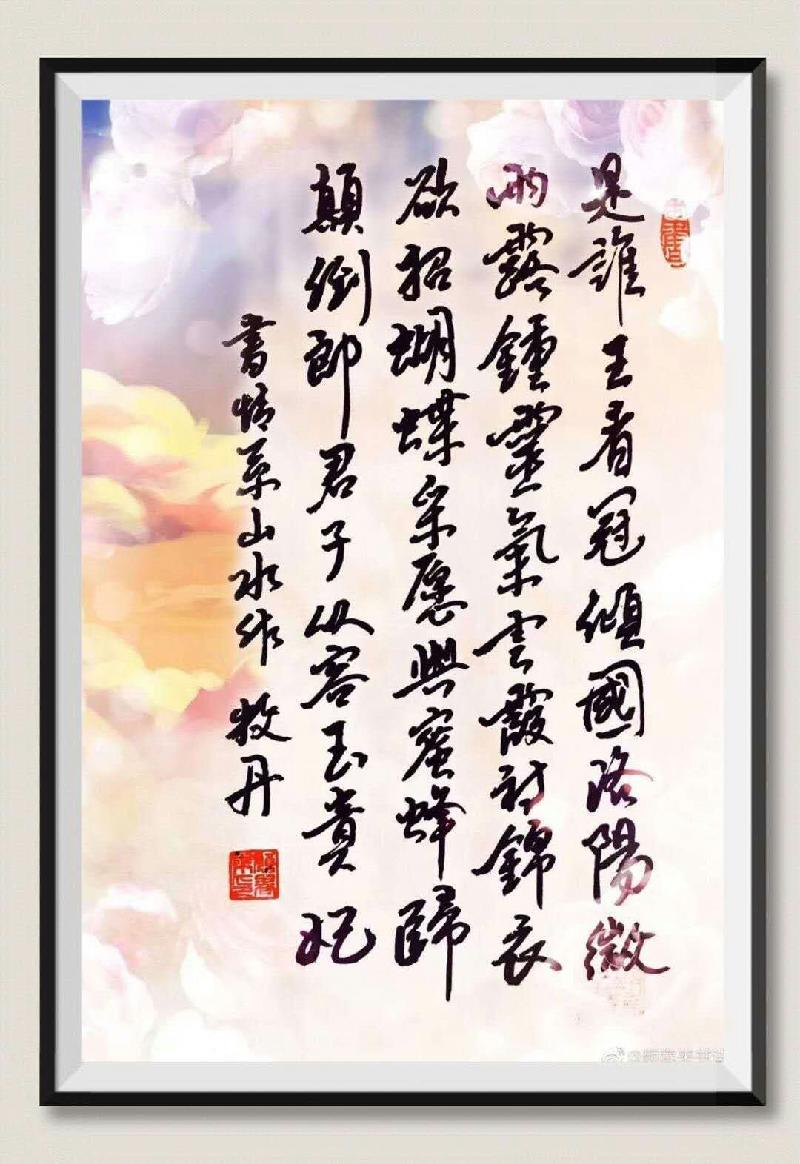 是誰王者冠傾國洛陽徽
雨露鍾靈氣雲霞錦衣
欲招蝴蝶采愿與蜜蜂歸
顛倒郎君子从容玉貴妃
書情系山水作 牧丹